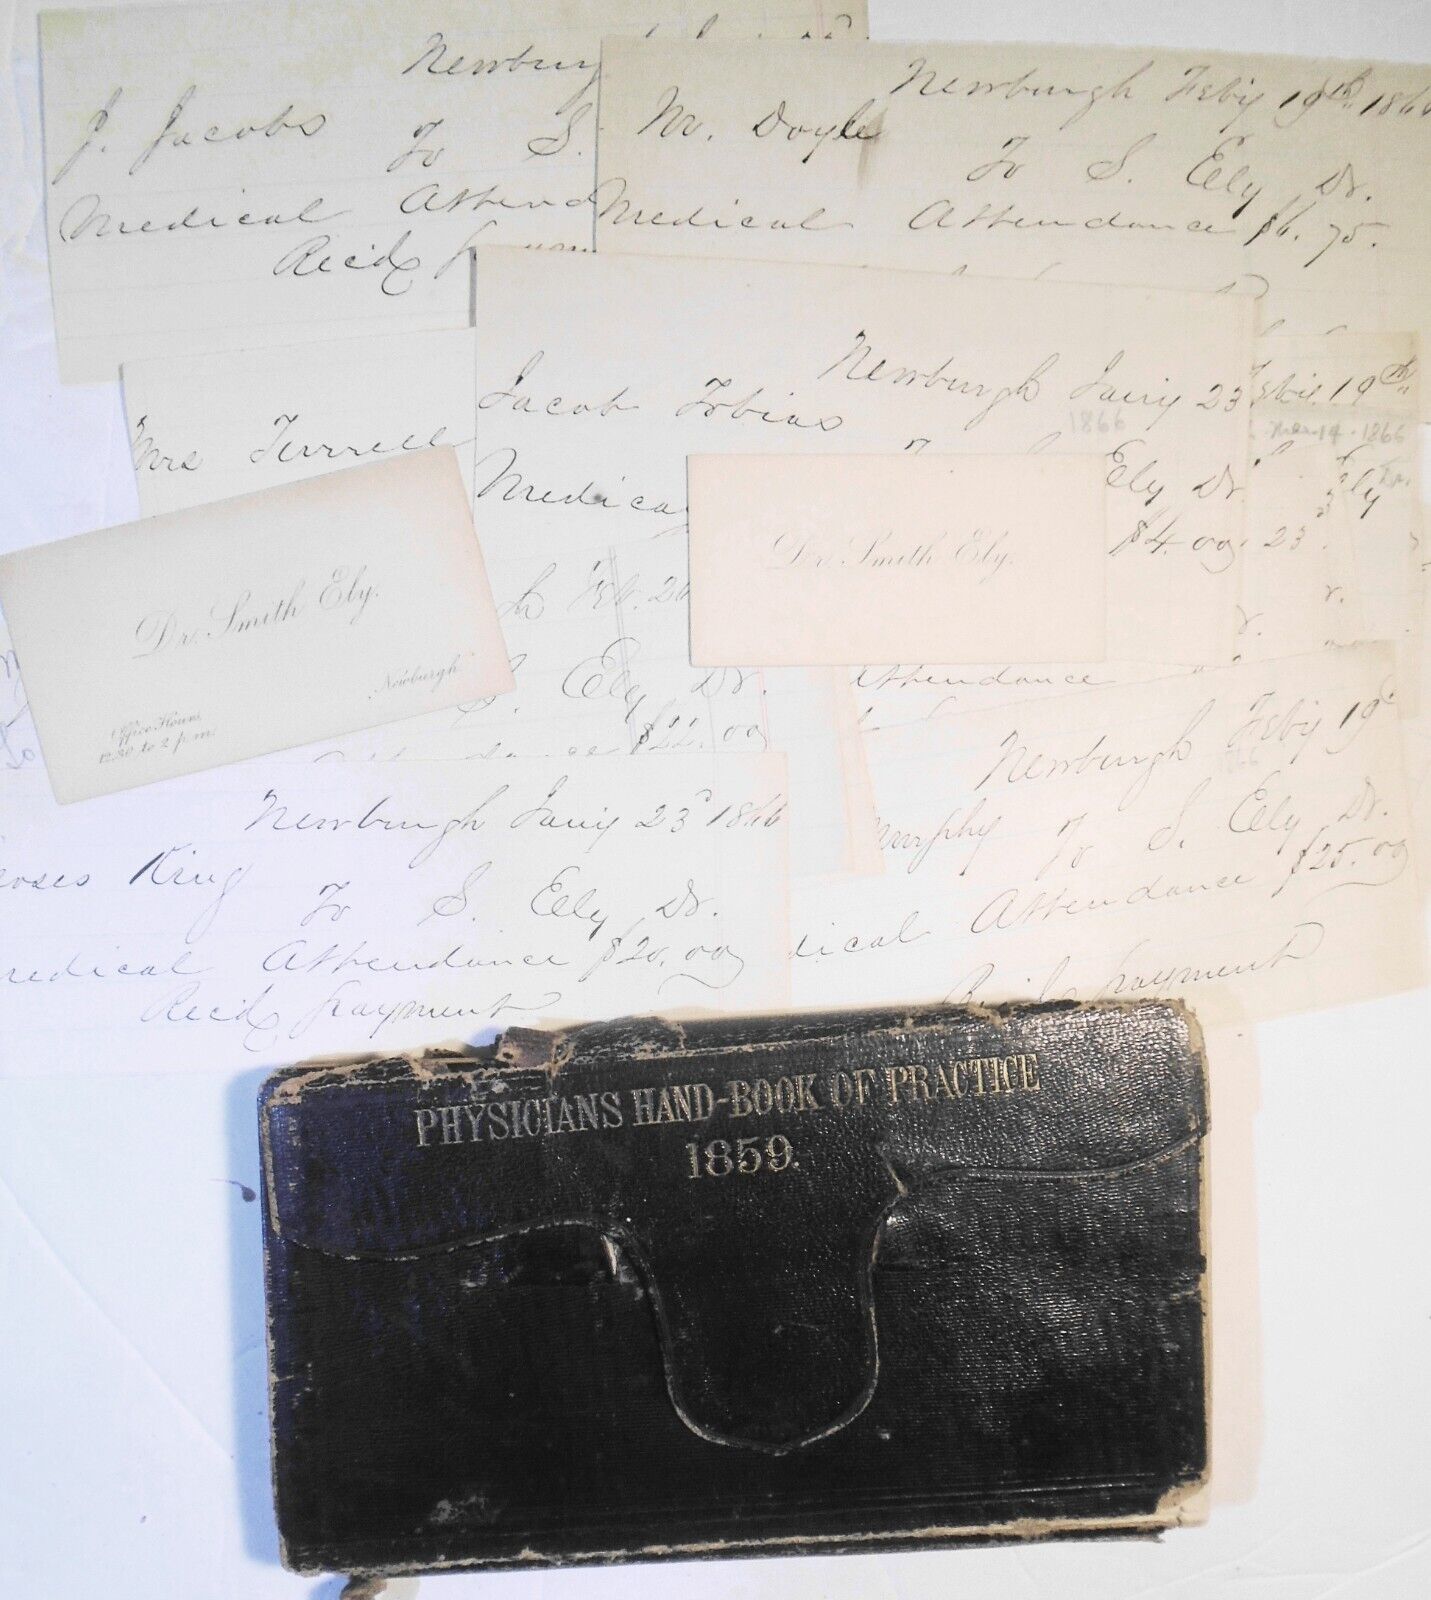 Newburg
J. Jacobs
To S.
Medical Attend
Recd
Newburgh Feby 19th 1866
Mr. Doyle
To S. Ely Dr.
Medical Attendance $6.75.
Mrs Terrell
Newburgh Jany 23
1866
Jacob Tobias
Ely Dr.
Medica
$4.00
Feby 19th
Mar 14 - 1866
Ely Dr.
23
Dr. Smith Ely.
Newburgh
Office Hours
12.30 to 2 p.m.
Dr. Smith Ely.
Feb. 26
S. Ely Dr.
$22.00
Attendance
Newburgh Jany 23d 1866
oses King
To S. Ely Dr.
edical Attendance $20.00
Recd payment
Newburgh Feby 19
1866
Murphy To S. Ely Dr.
dical Attendance $25.00
Recd payment
PHYSICIANS HAND-BOOK OF PRACTICE
1859.